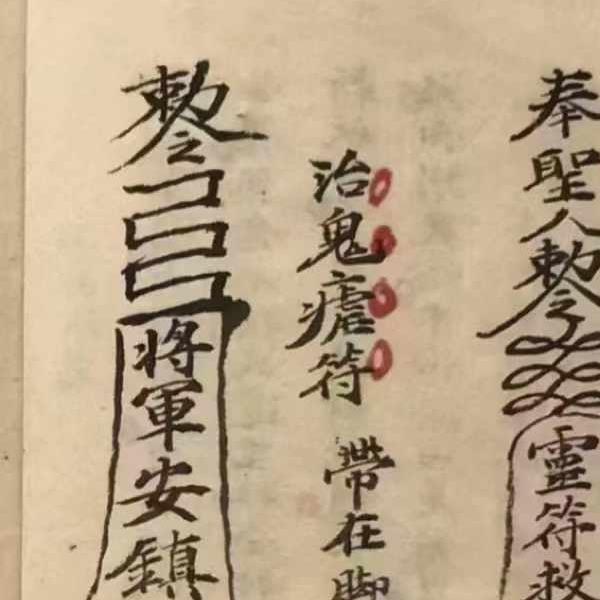 奉聖人敕令
靈符救
治鬼瘧符 帶在脚
敕令
將軍安鎮